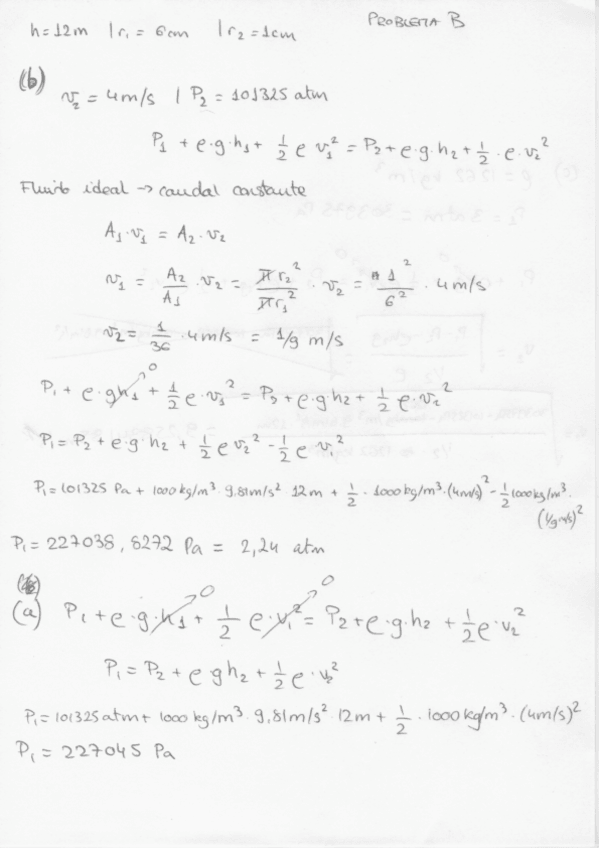 PROBLEMA B
h=12m | r₁ = 6cm | r₂ = 1cm
(b)
v₂ = 4m/s | P₂ = 101325 atm
P₁ + ρ·g·h₁ + 1/2 ρ v₁² = P₂ + ρ·g·h₂ + 1/2 · ρ·v₂²
Fluido ideal → caudal constante
A₁·v₁ = A₂·v₂
v₁ = A₂/A₁ · v₂ = πr₂²/πr₁² · v₂ = 1²/6² · 4m/s
v₂ = 1/36 · 4m/s = 1/9 m/s
P₁ + ρ·gh₁ + 1/2 ρ·v₁² = P₂ + ρ·g·h₂ + 1/2 ρ·v₂²
0
P₁ = P₂ + ρ·g·h₂ + 1/2 ρ v₂² - 1/2 ρ v₁²
P₁ = 101325 Pa + 1000 kg/m³ · 9,81m/s² · 12m + 1/2 · 1000kg/m³·(4m/s)² - 1/2 1000kg/m³·
(1/9 m/s)²
P₁ = 227038,8272 Pa = 2,24 atm
(a) P₁ + ρ·g·h₁ + 1/2 ρ·v₁² = P₂ + ρ·g·h₂ + 1/2 ρ·v₂²
0 0
P₁ = P₂ + ρgh₂ + 1/2 ρ·v₂²
P₁ = 101325 atm + 1000 kg/m³ · 9,81m/s² · 12m + 1/2 · 1000kg/m³ · (4m/s)²
P₁ = 227045 Pa